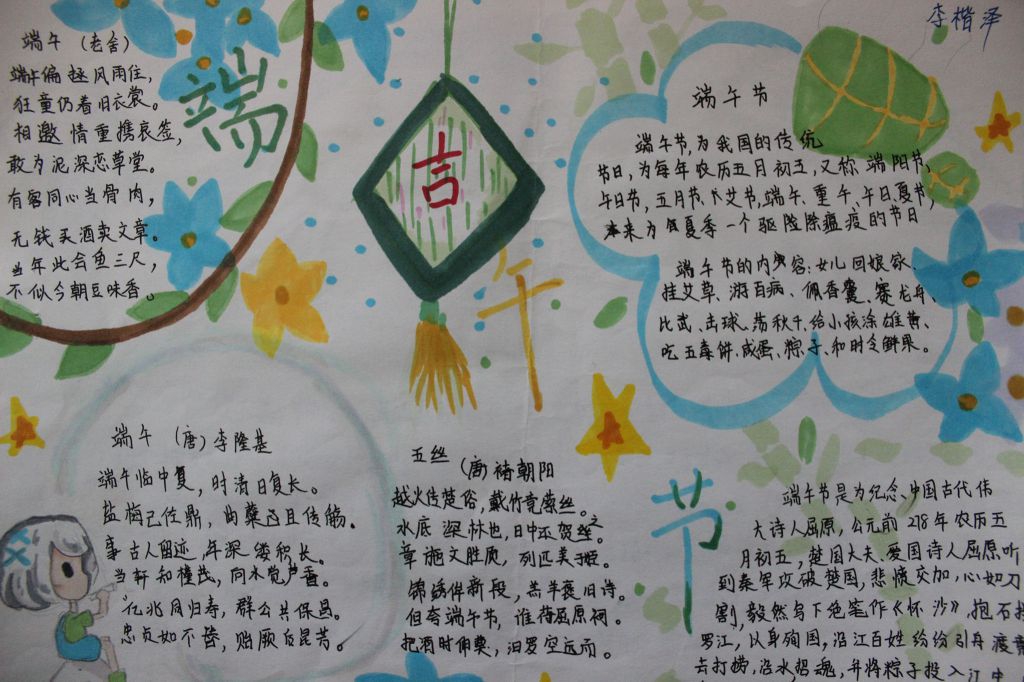 李楷泽
端午
吉
节
端午（老舍）
端午偏逢风雨住，
狂童仍着旧衣裳。
相邀情重携衰签，
敢为泥深恋草堂。
有客同心当骨肉，
无钱买酒卖文章。
当年此会鱼三尺，
不似今朝豆味香。
端午节
端午节，为我国的传统
节日，为每年农历五月初五，又称端阳节，
午日节，五月节、艾节，端午、重午、午日、夏节，
本来为夏季一个驱除瘟疫的节日
端午节的内容：女儿回娘家、
挂艾草、游百病、佩香囊、赛龙舟、
比武、击球、荡秋千、给小孩涂雄黄、
吃五毒饼、咸蛋、粽子、和时令鲜果。
端午（唐）李隆基
端午临中夏，时清日复长。
盐梅已佐鼎，曲蘖且传觞。
事古人留迹，年深缕积长。
当轩知槿茂，向水觉芦香。
亿兆同归寿，群公共保昌。
忠贞如不替，贻厥后昆芳。
五丝（唐）褚朝阳
越人传楚俗，截竹竞萦丝。
水底深休也，日中还贺之。
章施文胜质，列匹美于姬。
锦绣侔新段，羔羊寝旧诗。
但夸端午节，谁荐屈原祠。
把酒时伸奠，汨罗空远而。
端午节是为纪念、中国古代伟
大诗人屈原，公元前278年农历五
月初五，楚国大夫、爱国诗人屈原听
到秦军攻破楚国，悲愤交加，心如刀
割，毅然写下绝笔作《怀沙》，抱石投
罗江，以身殉国，沿江百姓纷纷引舟
去打捞，沿水招魂，并将粽子投入江中